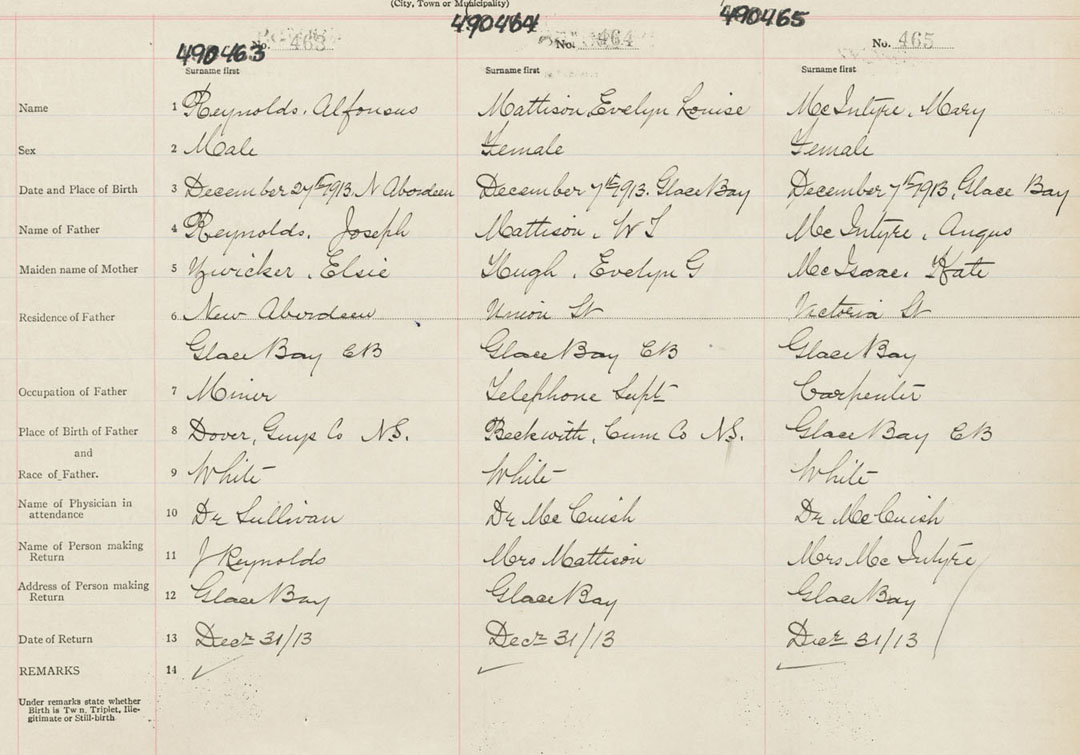 (City, Town or Municipality)
490463 490464 490465
No. 463 No. 464 No. 465
Surname first Surname first Surname first
Name 1 Reynolds, Alfonsus Mattison, Evelyn Louise McIntyre, Mary
Sex 2 Male Female Female
Date and Place of Birth 3 December 27th 1913. N Aberdeen December 7th 1913. Glace Bay December 7th 1913, Glace Bay
Name of Father 4 Reynolds, Joseph Mattison, W T McIntyre, Angus
Maiden name of Mother 5 Zwicker, Elsie Hugh, Evelyn G McIsaac, Kate
Residence of Father 6 New Aberdeen Union St Victoria St
Glace Bay CB Glace Bay CB Glace Bay
Occupation of Father 7 Miner Telephone Supt Carpenter
Place of Birth of Father 8 Dover, Guys Co N.S. Beckwith, Cum Co N.S. Glace Bay CB
and
Race of Father. 9 White White White
Name of Physician in
attendance 10 Dr Sullivan Dr McCuish Dr McCuish
Name of Person making
Return 11 J Reynolds Mrs Mattison Mrs McIntyre
Address of Person making
Return 12 Glace Bay Glace Bay Glace Bay
Date of Return 13 Decr 31/13 Decr 31/13 Decr 31/13
REMARKS 14
Under remarks state whether
Birth is Tw n, Triplet, Ille-
gitimate or Still-birth